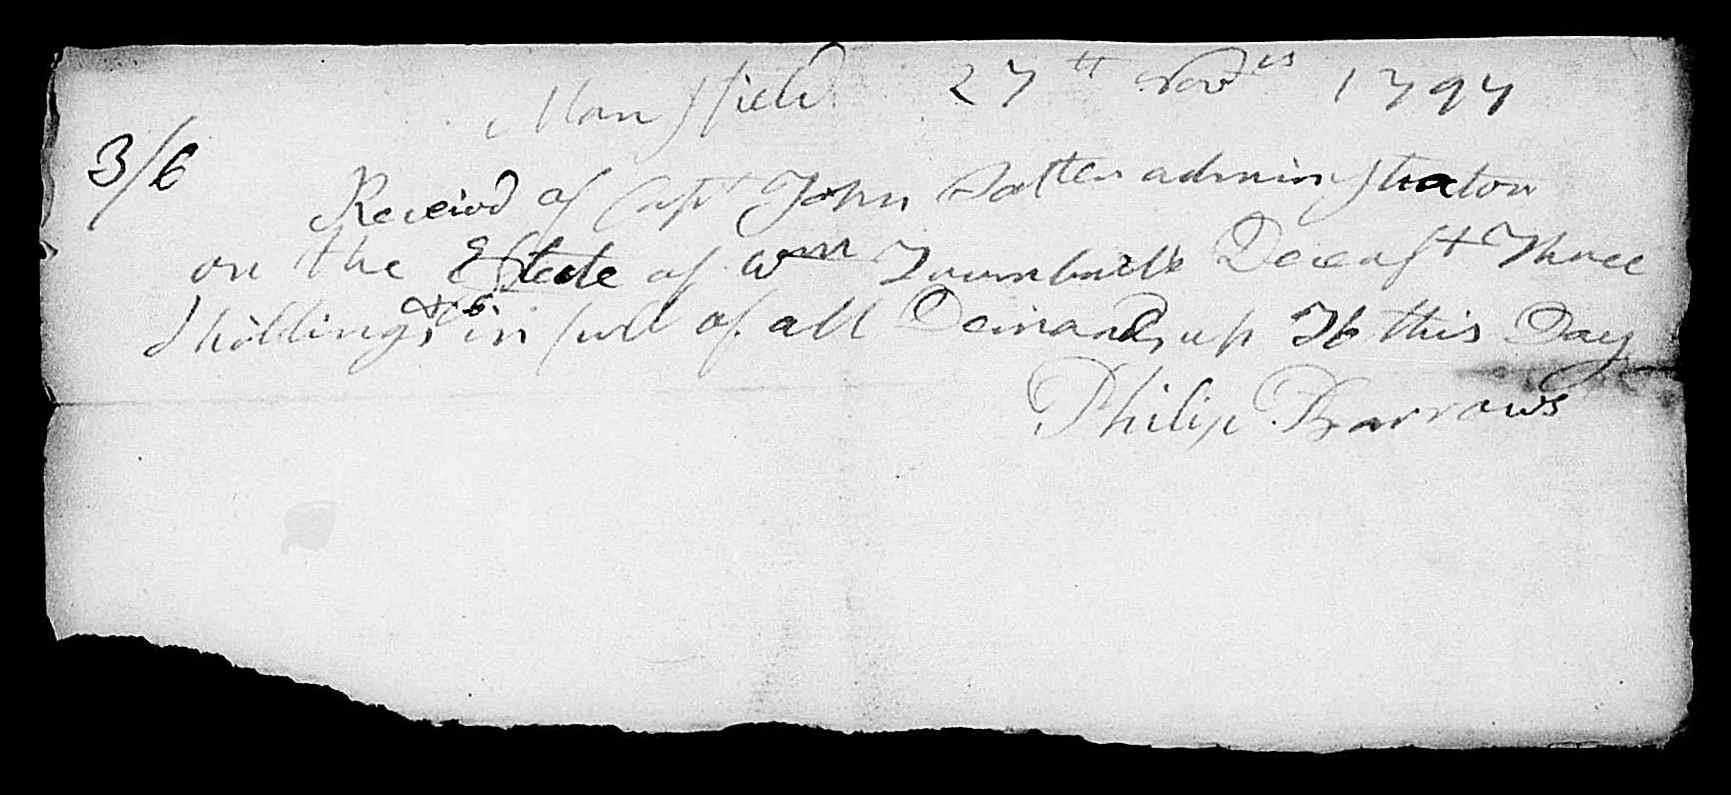 Mansfield 27th Novbr 1797
3/6
Receivd of Capt John Salter administrator
on the Estate of Wm Turnbull Deceast Three
Shillings & 6 in full of all Demands up To this Day
Philip Barrows